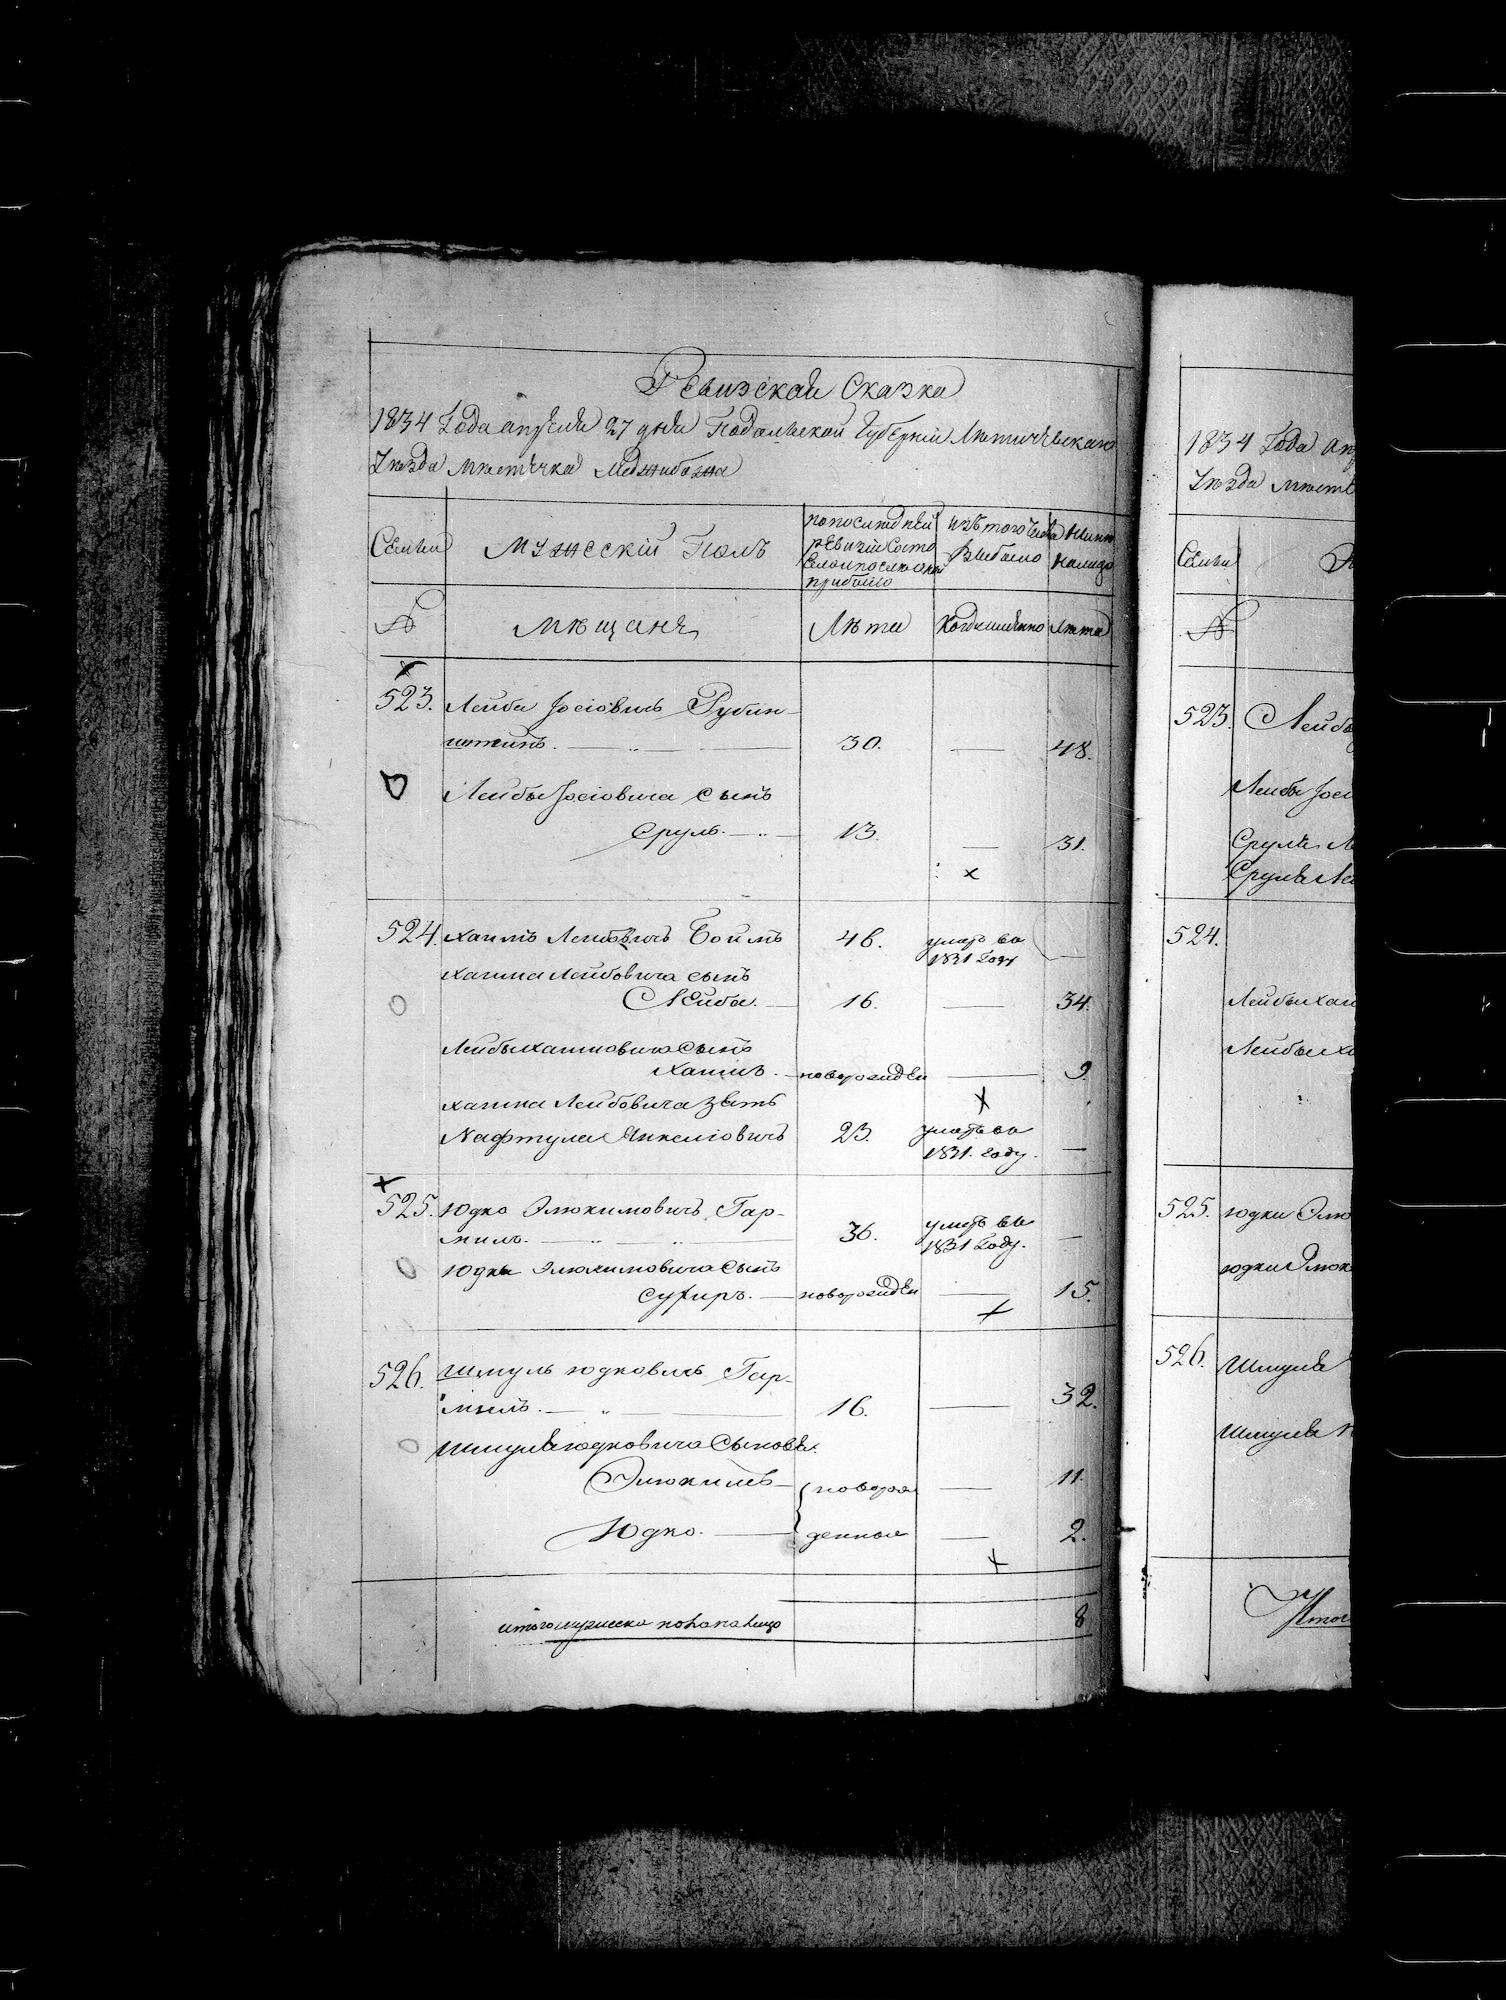 Ревизская Сказка
1834 Года апреля 27 дня Подольской Губернии Летичевскаго
Уезда местечка Меджибожа
Семьи
Мужескій Полъ
по последней
ревизіи состо
яло и после оной
прибыло
изъ того числа
выбыло
ныне
на лицо
№
Мещане
Лета
Когда именно
Лета
523.
Лейба Іосіовичъ Рубин-
штинъ.
30.
48.
Лейбы Іосіовича сынъ
Сруль.
13.
31.
524.
Хаимъ Лейбовичъ Боимъ
46.
умеръ въ
1831 Году
Хаима Лейбовича сынъ
Лейба.
16.
34.
Лейбы Хаимовича сынъ
Хаимъ.
новорожден
9.
Хаима Лейбовича зять
Нафтула Янкеліовичъ
23.
умеръ въ
1831. Году.
525.
Юдко Элюкимовичъ Гар-
миль.
36.
умеръ въ
1831 Году.
Юдки Элюкимовича сынъ
новорожден
15.
526.
Шмуль Юдковичъ Гар-
миль.
16.
32.
Шмуля Юдковича сыновья:
Элюкимъ
новорож
11.
Юдко.
денные
2.
итого мужеска пола на лицо
8
1834 Года ап
Уезда мест
Семьи
№
523.
Лейбы
Лейбы Іосі
Сруля Л
Сруля Ле
524.
Лейбы Хаи
Лейбы Ха
525.
Юдки Элю
Юдки Элюк
526.
Шмуля
Шмуля Ю
Итог